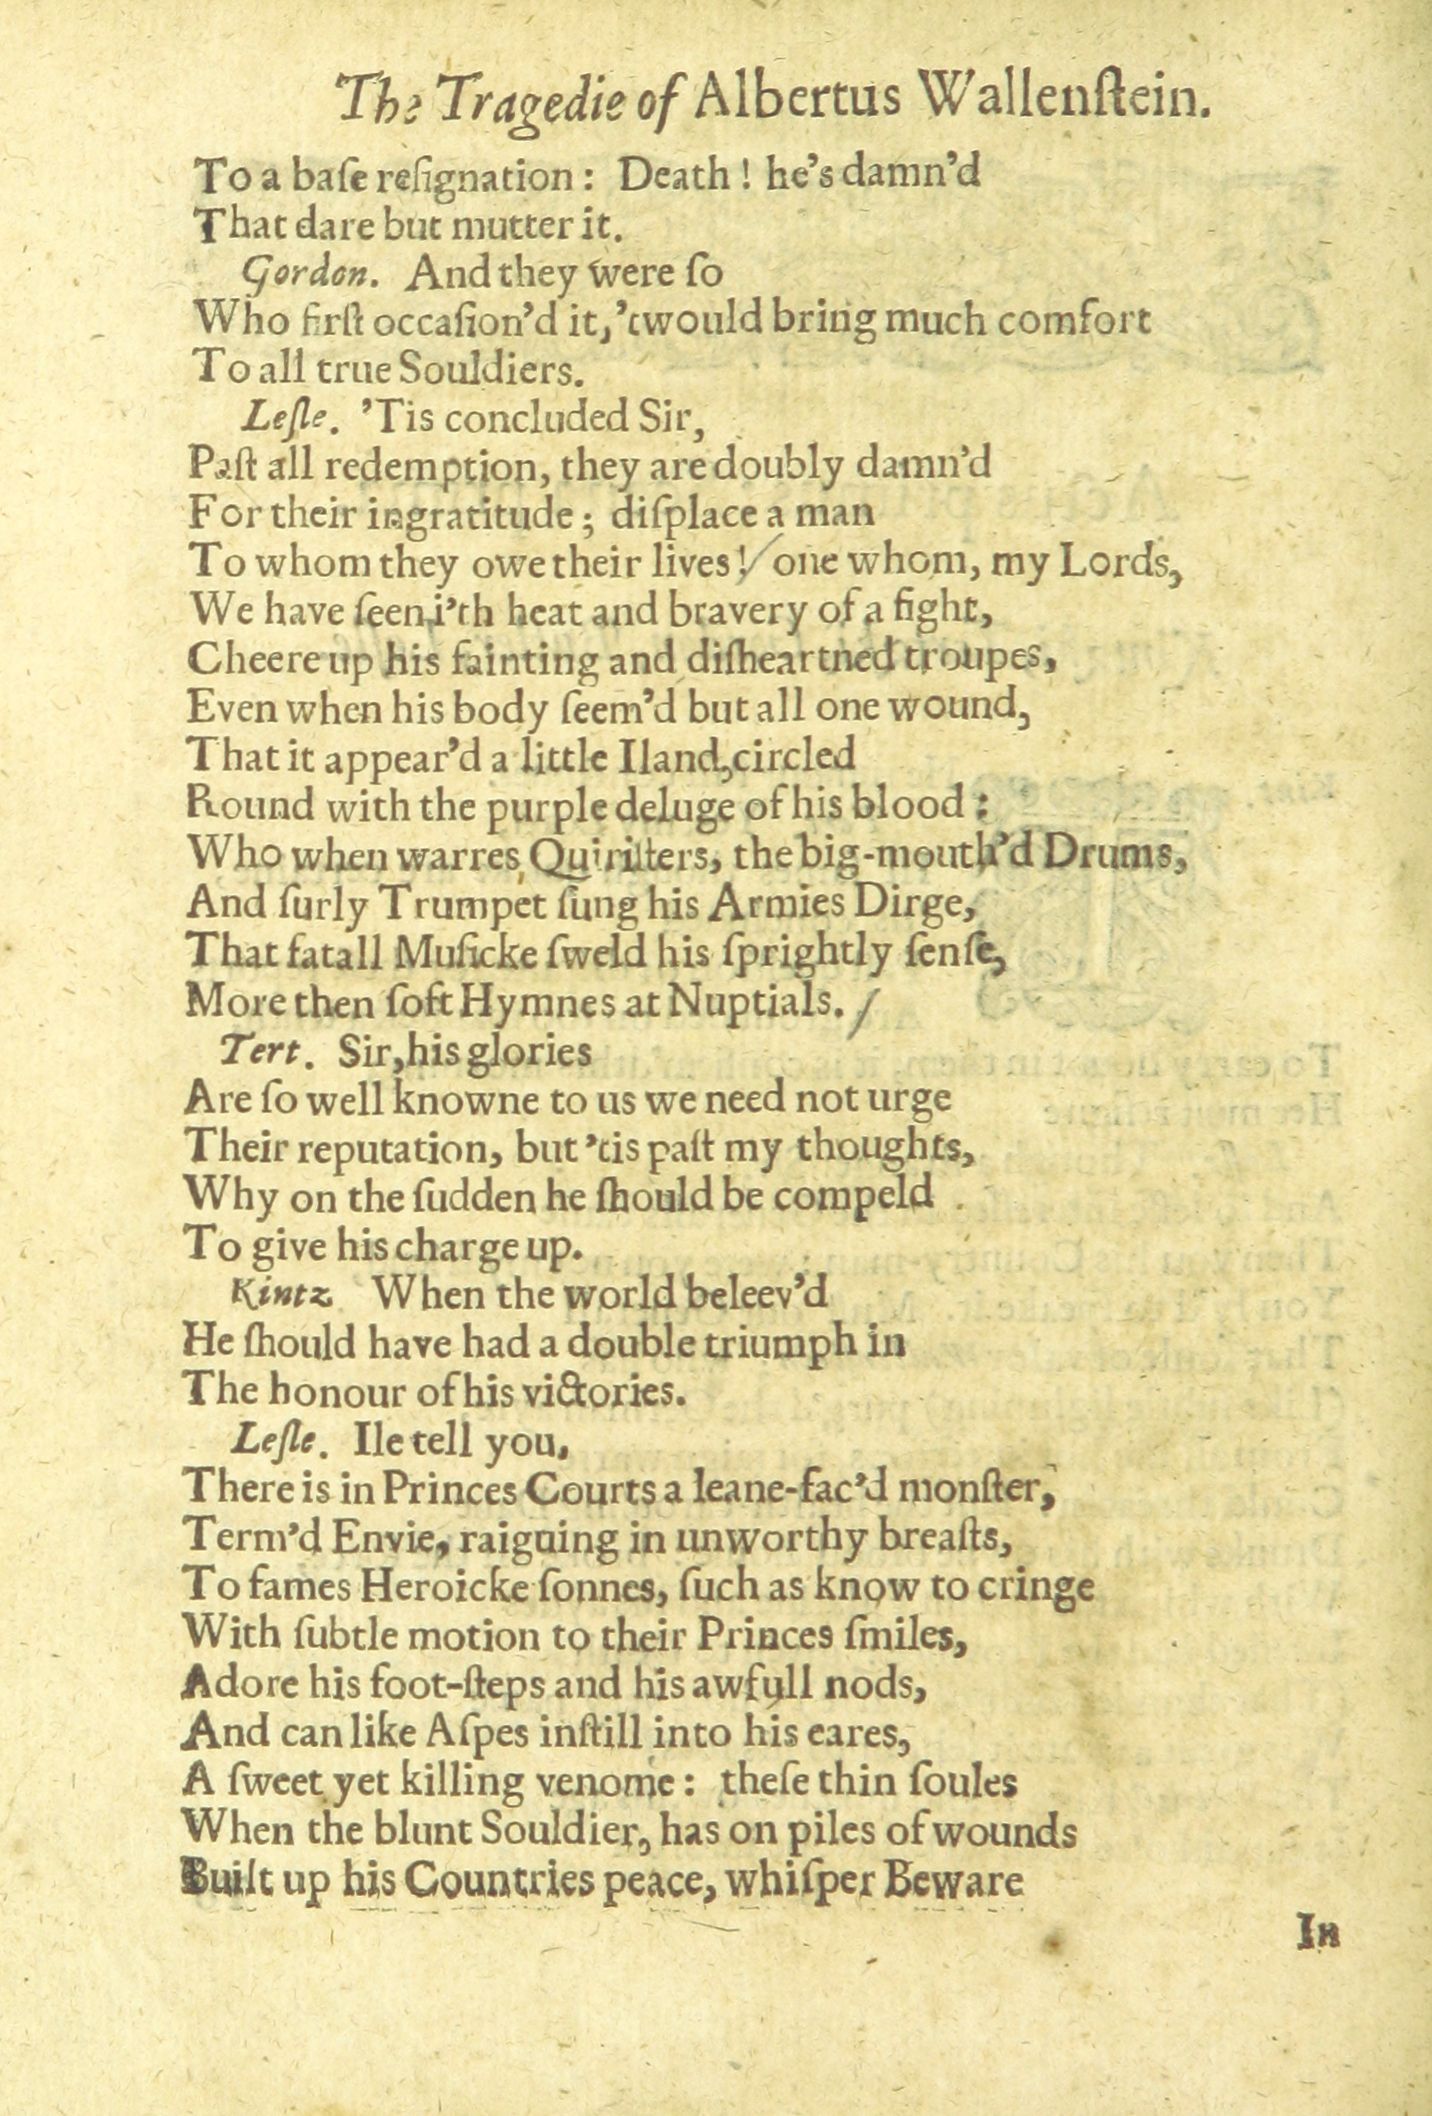 The Tragedie of Albertus Wallenſtein.
To a baſe reſignation: Death! he's damn'd
That dare but mutter it.
Gordon. And they were ſo
Who firſt occaſion'd it, 'twould bring much comfort
To all true Souldiers.
Leſle. 'Tis concluded Sir,
Paſt all redemption, they are doubly damn'd
For their ingratitude; diſplace a man
To whom they owe their lives! one whom, my Lords,
We have ſeen i'th heat and bravery of a fight,
Cheere up his fainting and diſheartned troupes,
Even when his body ſeem'd but all one wound,
That it appear'd a little Iland, circled
Round with the purple deluge of his blood:
Who when warres Quiriſters, the big-mouth'd Drums,
And ſurly Trumpet ſung his Armies Dirge,
That fatall Muſicke ſweld his ſprightly ſenſe,
More then ſoft Hymnes at Nuptials.
Tert. Sir, his glories
Are ſo well knowne to us we need not urge
Their reputation, but 'tis paſt my thoughts,
Why on the ſudden he ſhould be compeld
To give his charge up.
Kintz. When the world beleev'd
He ſhould have had a double triumph in
The honour of his victories.
Leſle. Ile tell you,
There is in Princes Courts a leane-fac'd monſter,
Term'd Envie, raigning in unworthy breaſts,
To fames Heroicke ſonnes, ſuch as know to cringe
With ſubtle motion to their Princes ſmiles,
Adore his foot-ſteps and his awfull nods,
And can like Aſpes inſtill into his eares,
A ſweet yet killing venome: theſe thin ſoules
When the blunt Souldier, has on piles of wounds
Built up his Countries peace, whiſper Beware
In